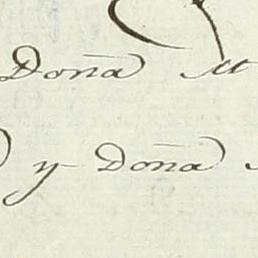 Doña M
y Doña